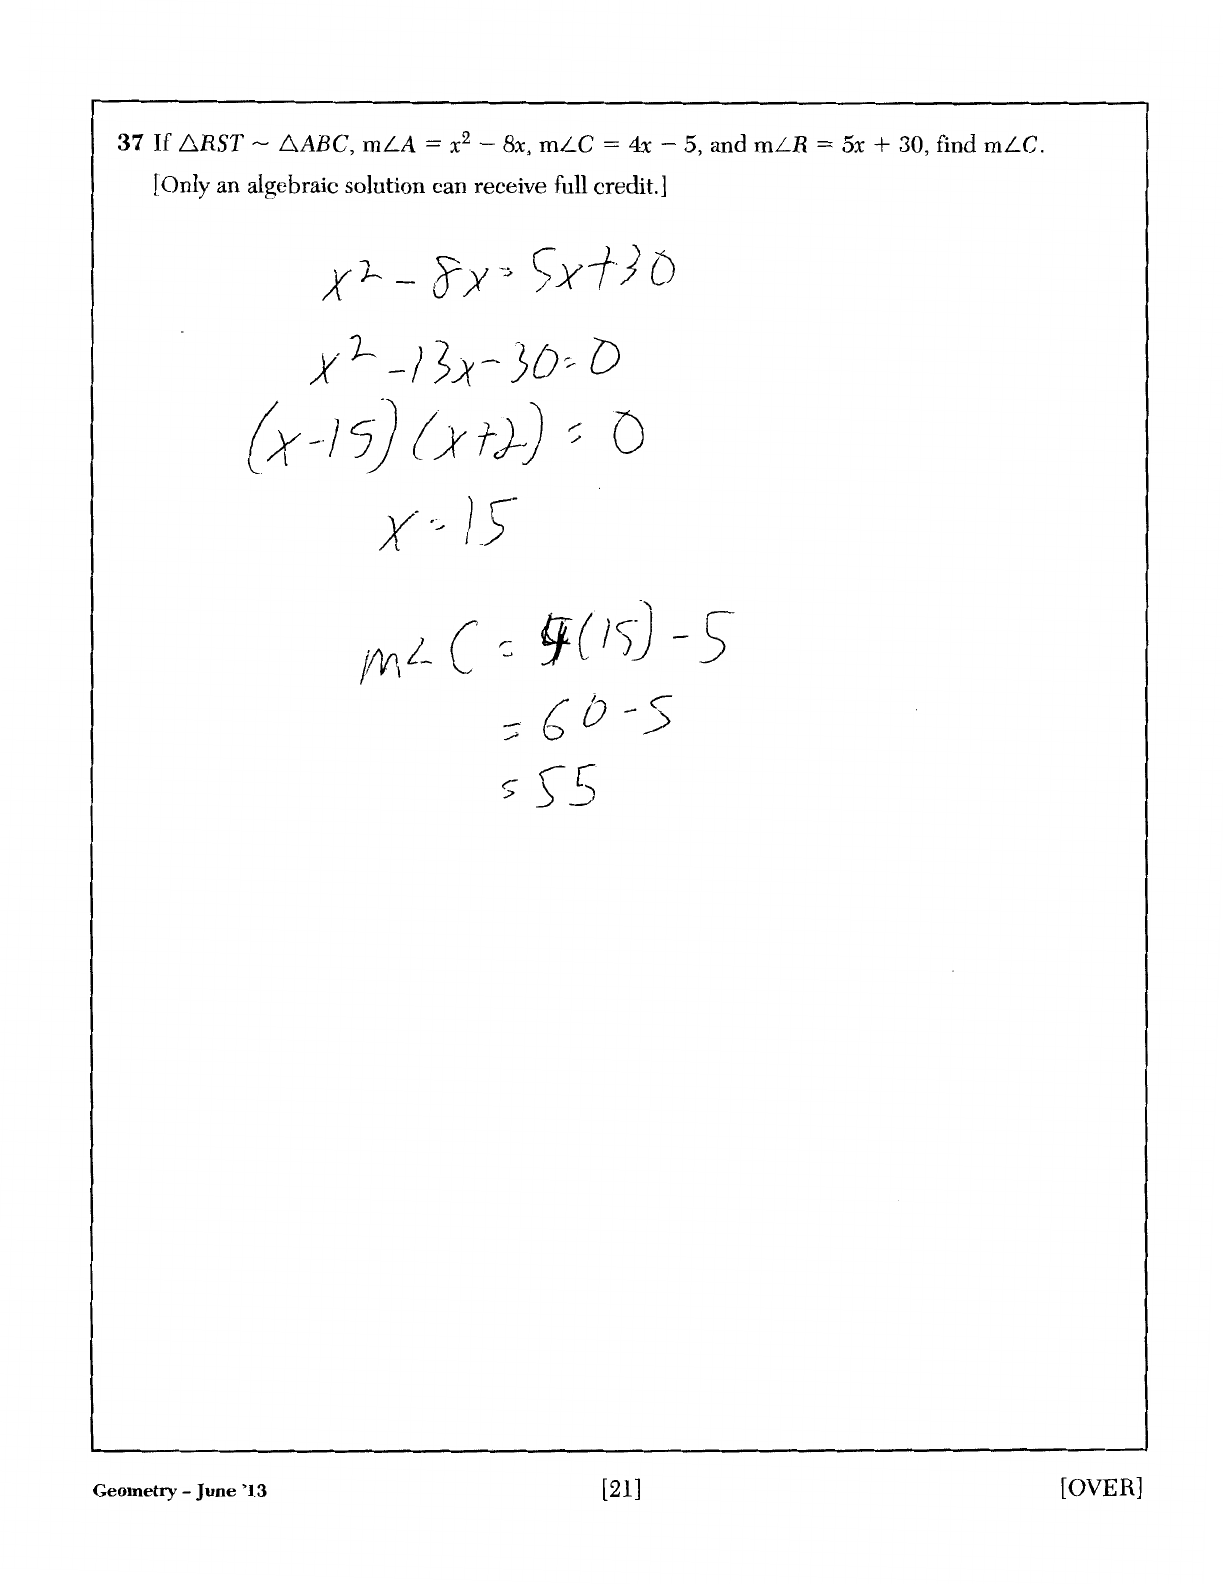 37 If △RST ~ △ABC, m∠A = x² − 8x, m∠C = 4x − 5, and m∠R = 5x + 30, find m∠C.
[Only an algebraic solution can receive full credit.]
x² - 8x = 5x+30
x² -13x-30=0
(x-15)(x+2) = 0
x = 15
m∠C = 4(15) - 5
= 60 - 5
= 55
Geometry – June '13 [21] [OVER]